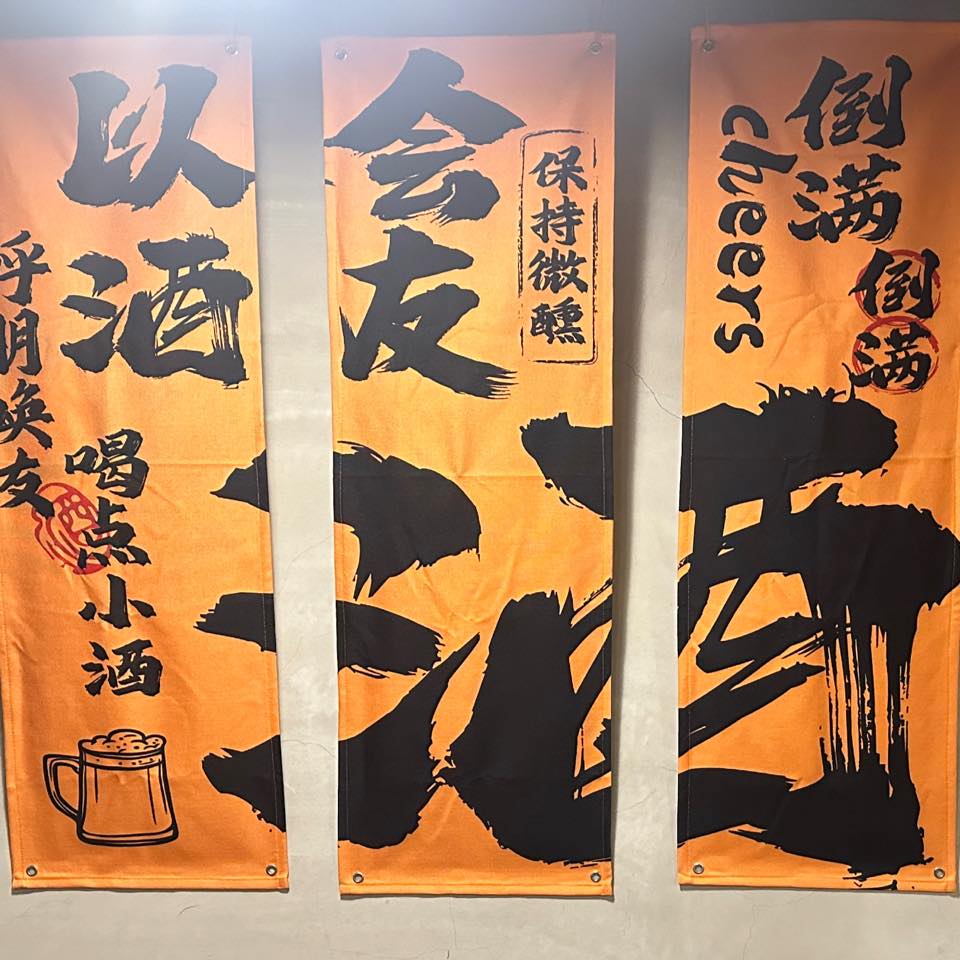 以酒
呼朋唤友
喝点小酒
会友
保持微醺
倒满
倒满
cheers
酒